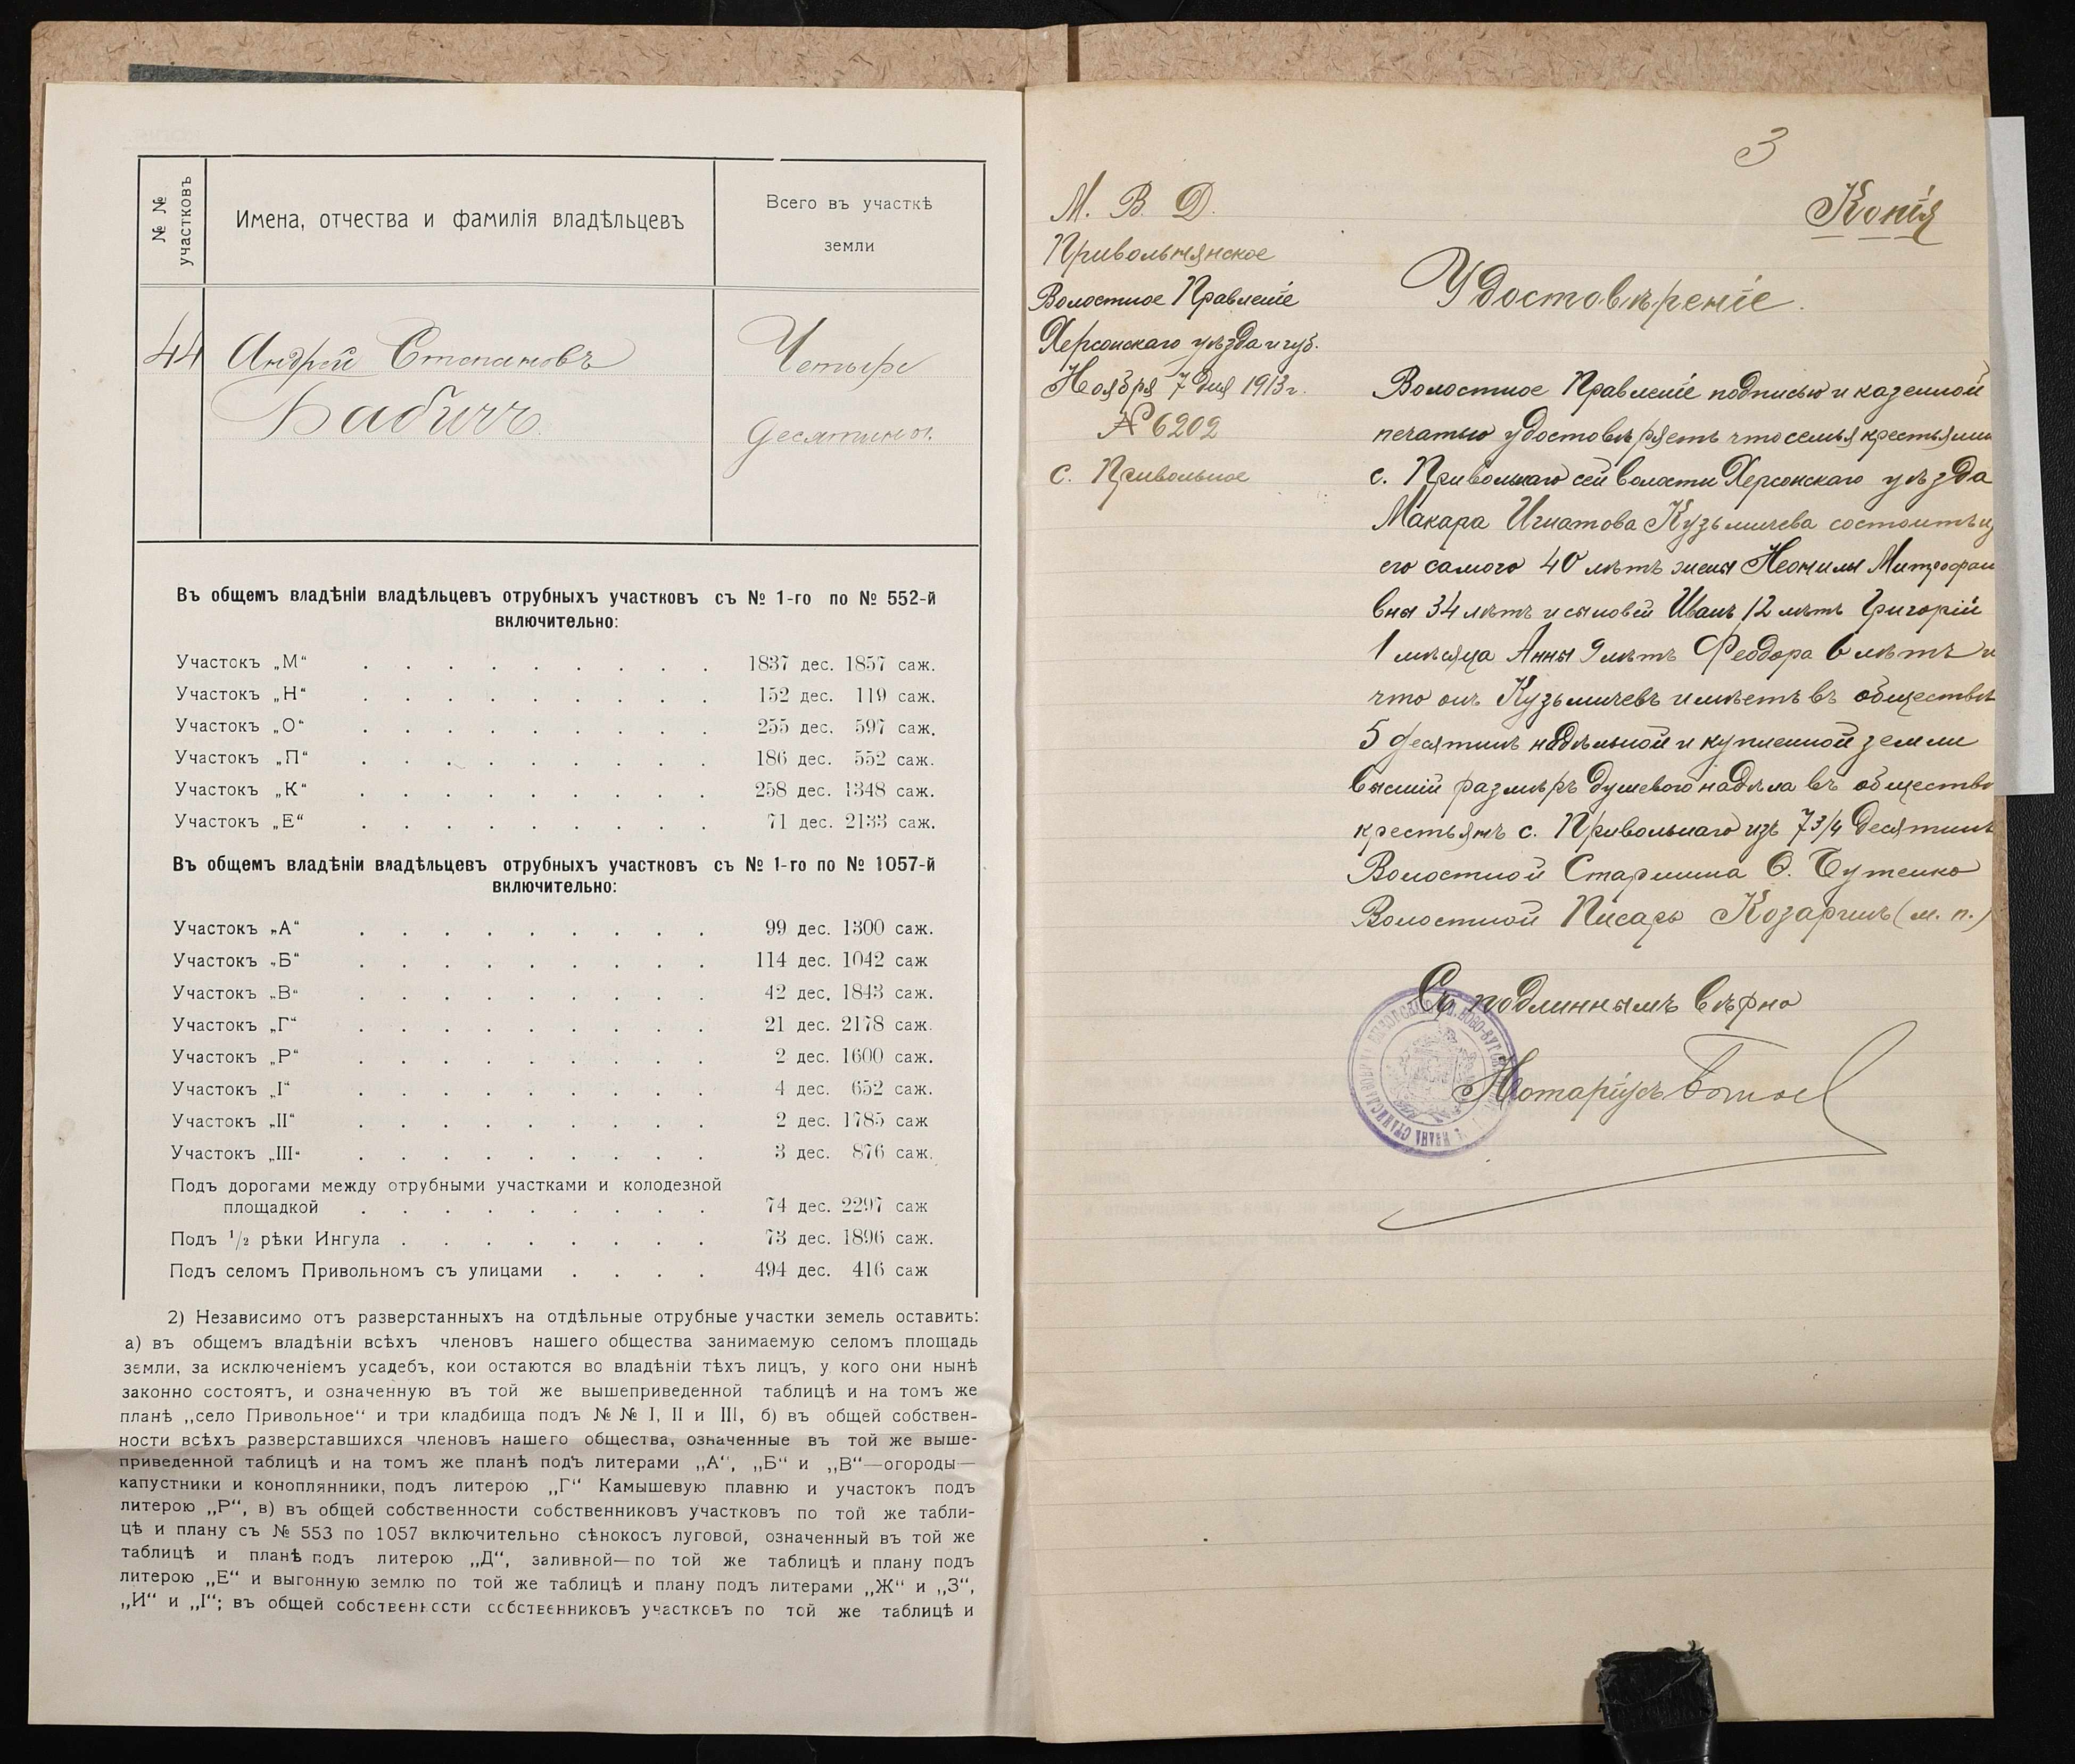 № № участковъ
Имена, отчества и фамилія владѣльцевъ
Всего въ участкѣ
земли
44
Андрей Степановъ
Бабичъ
Четыре
десятины.
Въ общемъ владѣніи владѣльцевъ отрубныхъ участковъ съ № 1-го по № 552-й
включительно:
Участокъ „М“ . . . . . . . . . 1837 дес. 1857 саж.
Участокъ „Н“ . . . . . . . . . 152 дес. 119 саж.
Участокъ „О“ . . . . . . . . . 255 дес. 597 саж.
Участокъ „П“ . . . . . . . . . 186 дес. 552 саж.
Участокъ „К“ . . . . . . . . . 258 дес. 1348 саж.
Участокъ „Е“ . . . . . . . . . 71 дес. 2133 саж.
Въ общемъ владѣніи владѣльцевъ отрубныхъ участковъ съ № 1-го по № 1057-й
включительно:
Участокъ „А“ . . . . . . . . . 99 дес. 1300 саж.
Участокъ „Б“ . . . . . . . . . 114 дес. 1042 саж
Участокъ „В“ . . . . . . . . . 42 дес. 1843 саж.
Участокъ „Г“ . . . . . . . . . 21 дес. 2178 саж.
Участокъ „Р“ . . . . . . . . . 2 дес. 1600 саж.
Участокъ „I“ . . . . . . . . . 4 дес. 652 саж.
Участокъ „II“ . . . . . . . . . 2 дес. 1785 саж
Участокъ „III“ . . . . . . . . . 3 дес. 876 саж.
Подъ дорогами между отрубными участками и колодезной
площадкой . . . . . . . . . 74 дес. 2297 саж
Подъ 1/2 рѣки Ингула . . . . . . . . 73 дес. 1896 саж.
Подъ селомъ Привольномъ съ улицами . . . . 494 дес. 416 саж
2) Независимо отъ разверстанныхъ на отдѣльные отрубные участки земель оставить:
а) въ общемъ владѣніи всѣхъ членовъ нашего общества занимаемую селомъ площадь
земли, за исключеніемъ усадебъ, кои остаются во владѣніи тѣхъ лицъ, у кого они нынѣ
законно состоятъ, и означенную въ той же вышеприведенной таблицѣ и на томъ же
планѣ „село Привольное“ и три кладбища подъ № № I, II и III, б) въ общей собствен-
ности всѣхъ разверставшихся членовъ нашего общества, означенные въ той же выше-
приведенной таблицѣ и на томъ же планѣ подъ литерами „А“, „Б“ и „В“—огороды—
капустники и коноплянники, подъ литерою „Г“ Камышевую плавню и участокъ подъ
литерою „Р“, в) въ общей собственности собственниковъ участковъ по той же табли-
цѣ и плану съ № 553 по 1057 включительно сѣнокосъ луговой, означенный въ той же
таблицѣ и планѣ подъ литерою „Д“, заливной—по той же таблицѣ и плану подъ
литерою „Е“ и выгонную землю по той же таблицѣ и плану подъ литерами „Ж“ и „З“,
„И“ и „I“; въ общей собственности собственниковъ участковъ по той же таблицѣ и
3
Копія
М. В. Д.
Привольнянское
Волостное Правленіе
Херсонскаго уѣзда и губ.
Ноября 7 дня 1913 г.
№ 6202
с. Привольное
Удостовѣреніе.
Волостное Правленіе подписью и казенной
печатью удостовѣряетъ что семья крестьянин
с. Привольнаго сей волости Херсонскаго уѣзда
Макара Игнатова Кузьмичева состоитъ из
его самого 40 лѣтъ жены Неонилы Митрофан
вны 34 лѣтъ и сыновей Иванъ 12 лѣтъ Григорій
1 мѣсяца Анны 9 лѣтъ Феодора 6 лѣтъ и
что онъ Кузьмичевъ имѣетъ въ обществѣ
5 десятинъ надѣльной и купленной земли
высшій размѣръ душевого надѣла въ общество
крестьянъ с. Привольнаго изъ 7 3/4 десятинъ
Волостной Старшина Ѳ. Бутенко
Волостной Писарь Козаринъ (м. п.)
Съ подлиннымъ вѣрно
Нотаріусъ